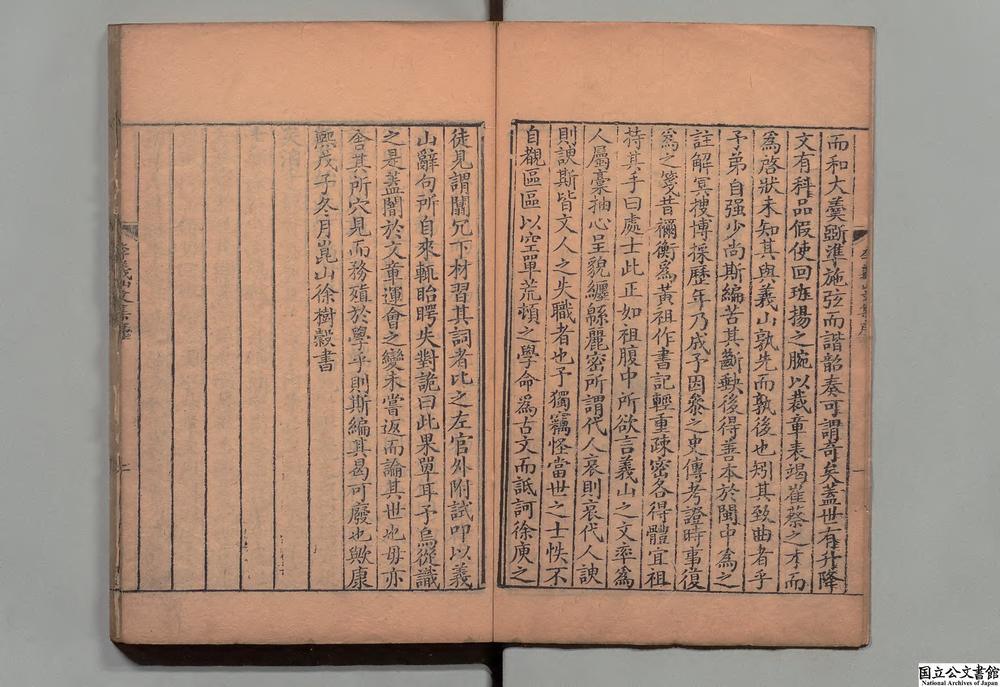 而和大羹斲準施弦而諧韶奏可謂奇矣蓋世有升降
文有科品假使回班揚之腕以裁章表竭崔蔡之才而
爲啓狀未知其與義山孰先而孰後也矧其致曲者乎
予弟自强少尚斯編苦其斷缺後得善本於閩中爲之
註解冥搜博採歷年乃成予因叅之史傳考證時事復
爲之箋昔禰衡爲黃祖作書記輕重疎密各得體宜祖
持其手曰處士此正如祖腹中所欲言義山之文率爲
人屬稾抽心呈貌纚緜麗密所謂代人哀則哀代人諛
則諛斯皆文人之失職者也予獨竊怪當世之士怢不
自觀區區以空單荒頓之學命爲古文而詆訶徐庾之
徒見謂闒冗下材習其詞者比之左官外附試叩以義
山辭句所自來輒眙睯失對詭曰此果單耳予烏從識
之是蓋闇於文章運會之變未嘗返而論其世也毋亦
舍其所穴見而務殖於學乎則斯編其曷可廢也歟康
熙戊子冬月崑山徐樹榖書
李義山文集序
二
國立公文書館
National Archives of Japan